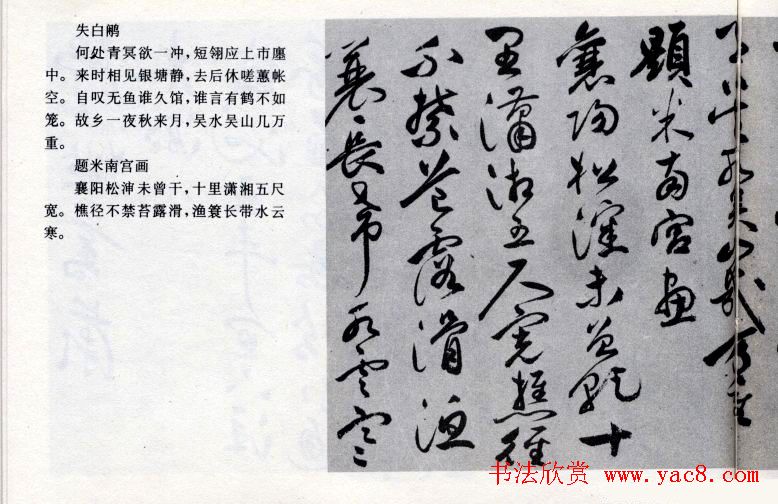 失白鹇
何处青冥欲一冲，短翎应上市廛
中。来时相见银塘静，去后休嗟蕙帐
空。自叹无鱼谁久馆，谁言有鹤不如
笼。故乡一夜秋来月，吴水吴山几万
重。
题米南宫画
襄阳松渖未曾干，十里潇湘五尺
宽。樵径不禁苔露滑，渔簑长带水云
寒。
吴山几万重
顕米南宫画
襄阳松渖未曾乾十
里潇湘五尺宽樵径
不禁苔露滑渔
蓑长带水云寒
书法欣赏 www.yac8.com